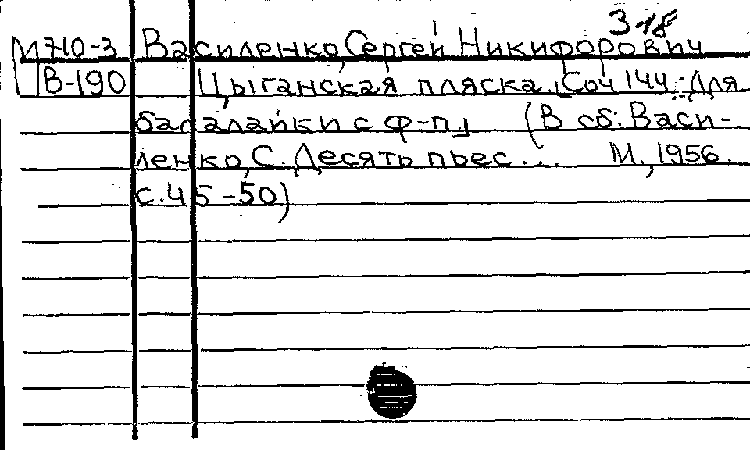 318
М710-3 Василенко, Сергей Никифорович
В-190 Цыганская пляска. Соч 144. Для
балалайки с ф-п. (В сб: Васи-
ленко, С. Десять пьес... М., 1956.
с. 45-50)